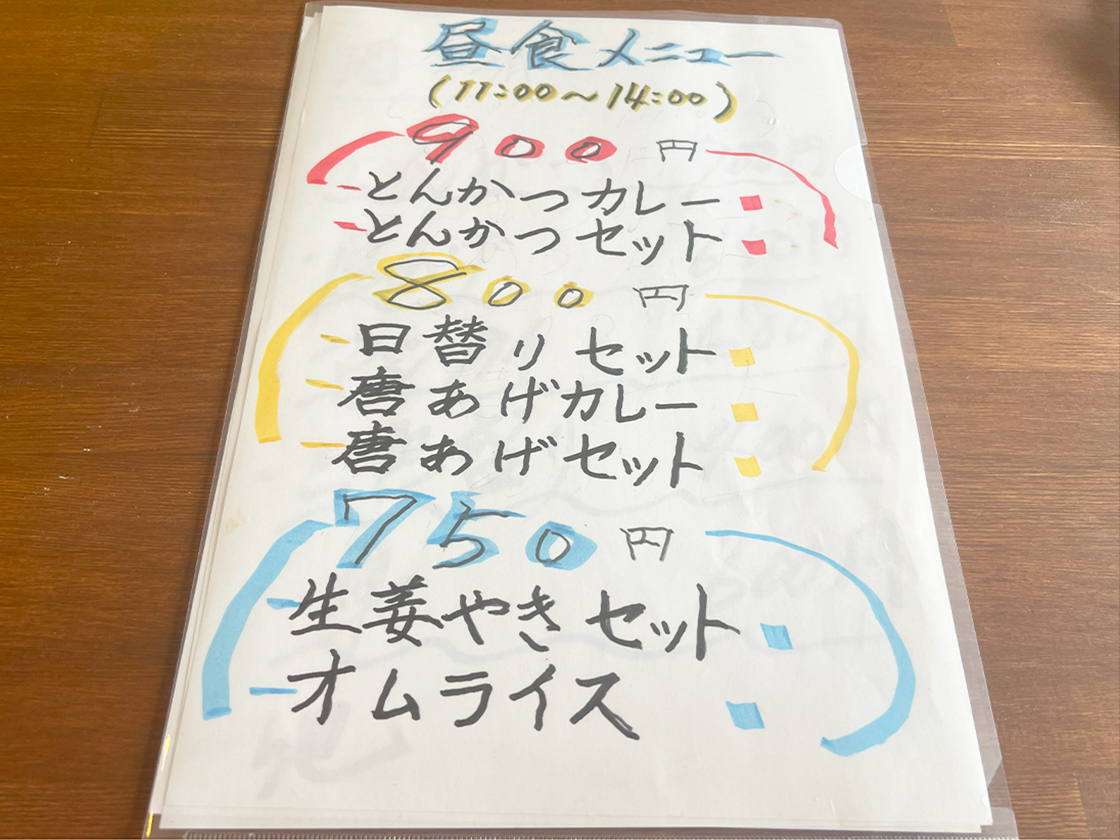 昼食メニュー
(11:00〜14:00)
900円
とんかつカレー
とんかつセット
800円
日替りセット
唐あげカレー
唐あげセット
750円
生姜やきセット
オムライス